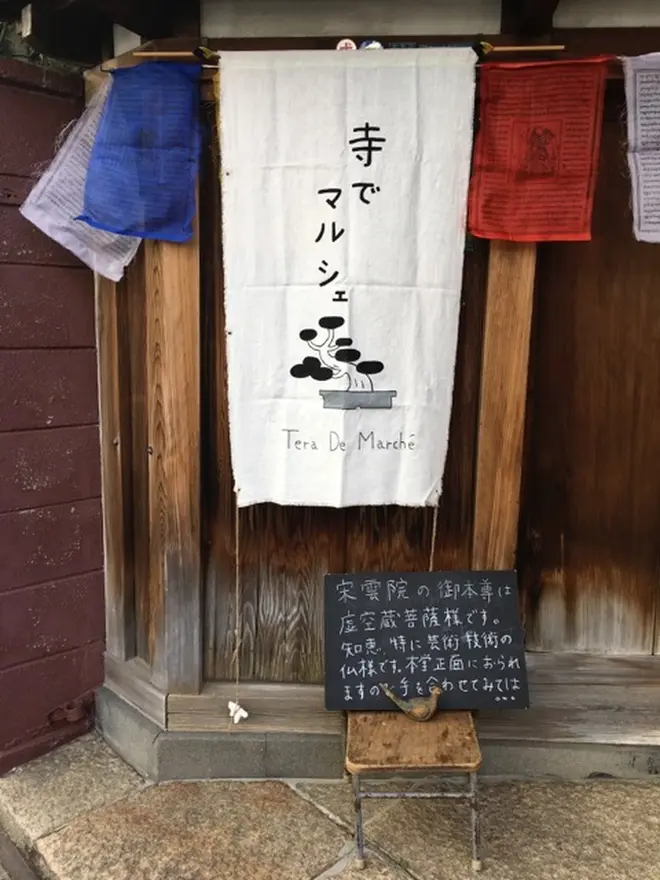 寺で
マルシェ
Tera De Marché
宋雲院の御本尊は
虚空蔵菩薩様です。
知恵、特に芸術技術の
仏様です。本堂正面におられ
ますので手を合わせてみては
...